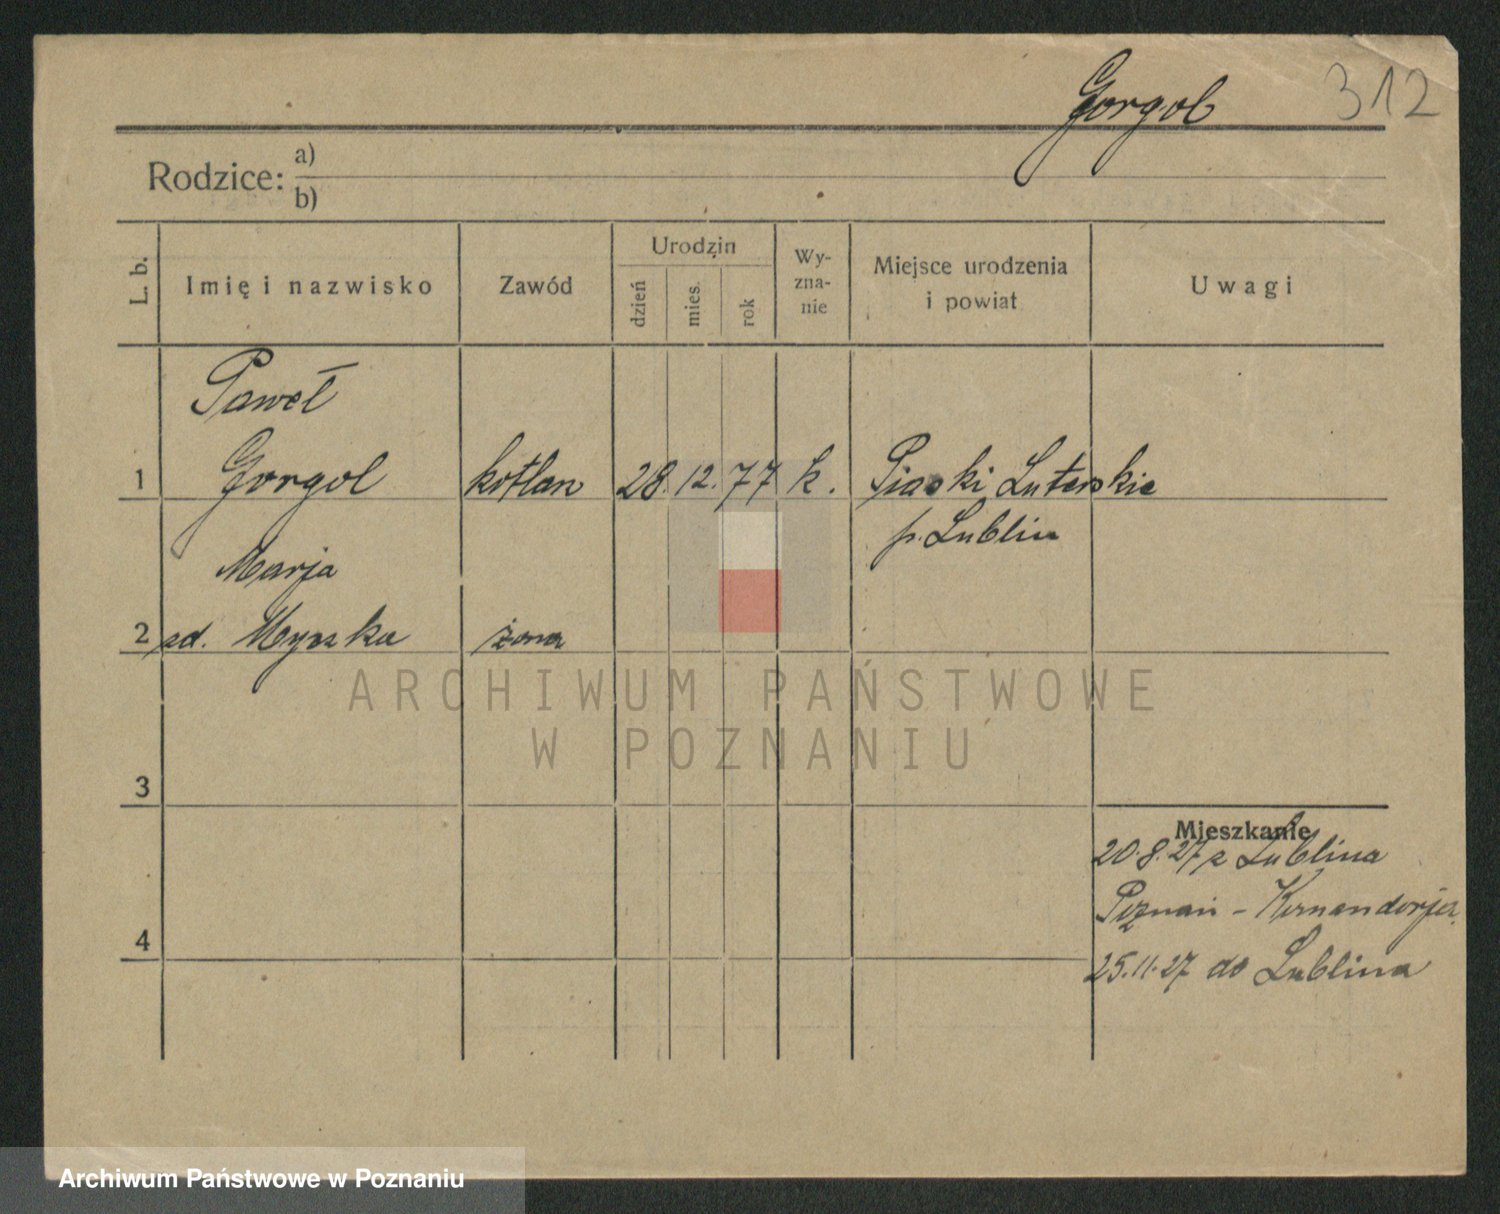 Gorgol 312
Rodzice: a)
b)
L. b. Imię i nazwisko Zawód Urodzin dzień mies. rok Wy-zna-nie Miejsce urodzenia i powiat Uwagi
Paweł
1 Gorgol kotlarz 28. 12. 77 k. Piaski Luterskie
p. Lublin
Marja
2 zd. Myszka żona
ARCHIWUM PAŃSTWOWE
W POZNANIU
3
Mieszkanie
20.8.27 z Lublina
Poznań - Komandorja
4
25.11.27 do Lublina
Archiwum Państwowe w Poznaniu